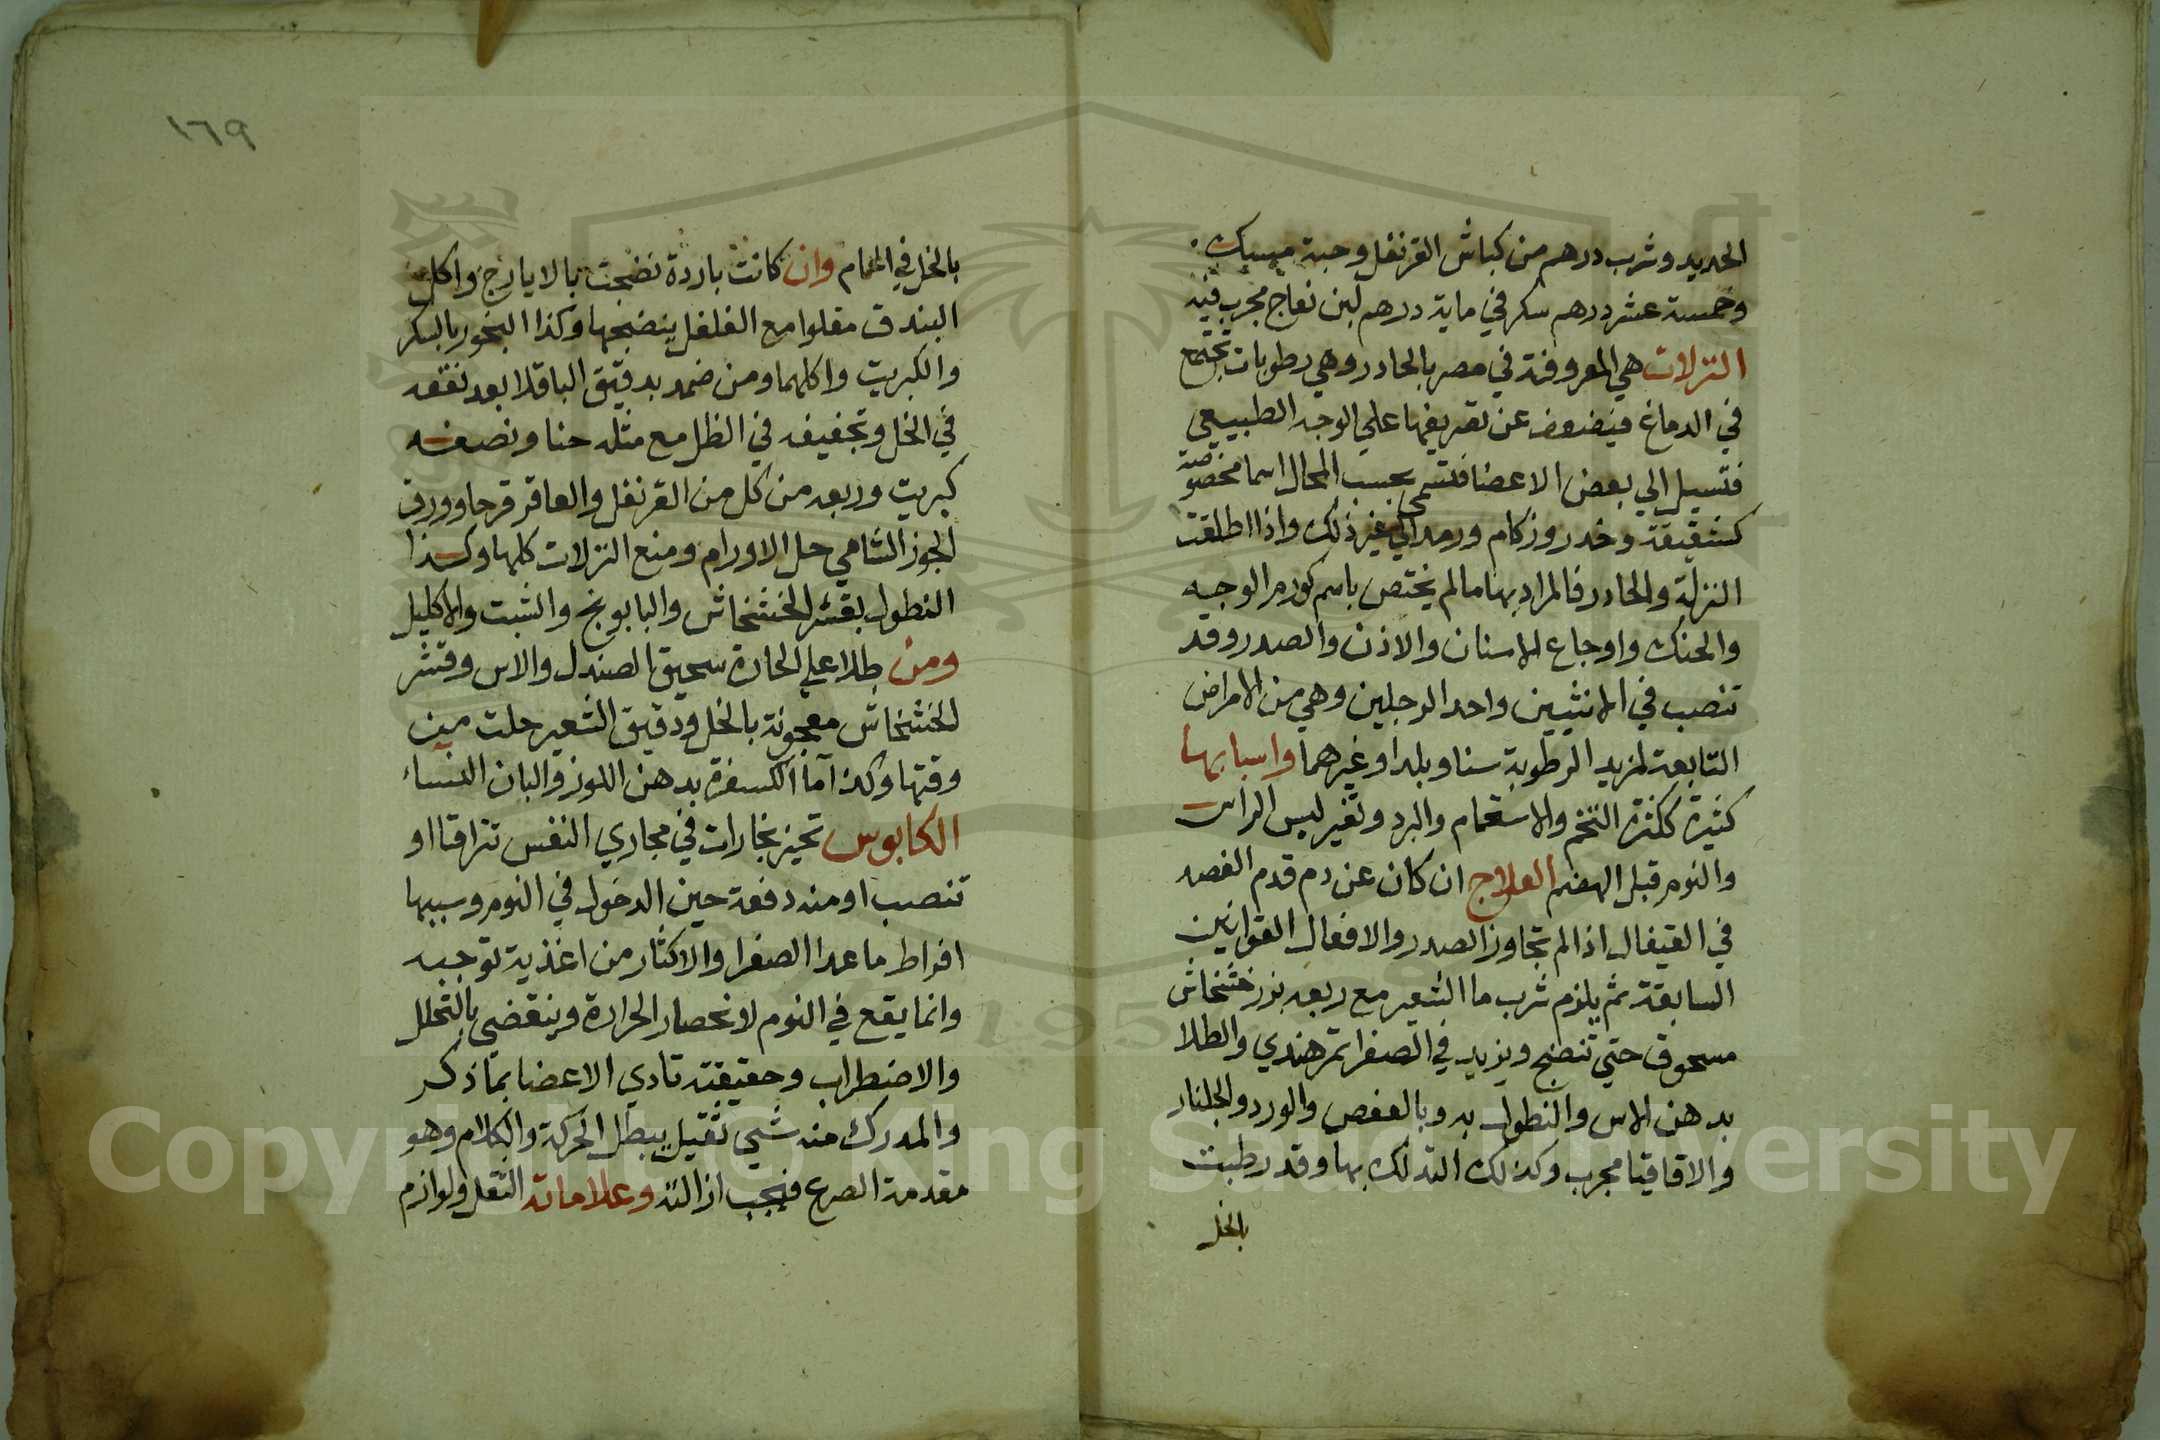 الحديد وشرب درهم من كباش القرنفل وحبة مسك
وخمسة عشر درهم سكر في ماية درهم لبن نعاج مجرب فيه
النزلات هي المعروفة في مصر بالحادر وهي رطوبات تجتمع
في الدماغ فيضعف عن تصريفها علي الوجه الطبيعي
فتسيل الي بعض الاعضا فتسمي بحسب المحال اسما مخصوصة
كشقيقة وخدر وزكام ورمد الي غير ذلك واذا اطلقت
النزلة والحادر فالمراد بهما مالم يختص باسم كورم الوجيه
والحنك واوجاع الاسنان والاذن والصدر وقد
تنصب في الانثيين واحد الرجلين وهي من الامراض
التابعة لمزيد الرطوبة سنا وبلدا وغيرهما واسبابها
كثيرة ككثرة التخم والاستحمام والبرد وتغير لبس الراس
والنوم قبل الهضم العلاج ان كان عن دم قدم الفصد
في القيفال اذا لم تجاوز الصدر والافعال القوانين
السابقة ثم يلزم شرب ما الشعير مع ربعه بزر خشخاش
مسحوق حتي تنضج ويزيد في الصفرا تمر هندي والطلا
بدهن الاس والنطول به وبالعفص والورد والجلنار
والاقاقيا مجرب وكذلك التدلك بها وقد رطبت
بالخل
١٦٩
بالخل في الحمام وان كانت باردة نضجت بالايارج واكل
البندق مقلوا مع الفلفل ينضجها وكذا البخور بالسكر
والكبريت واكلهما ومن ضمد بدقيق الباقلا بعد نقعه
في الخل وتجفيفه في الظل مع مثله حنا ونصفه
كبريت وربعه من كل من القرنفل والعاقر قرحا وورق
الجوز الشامي حل الاورام ومنع النزلات كلها وكذا
النطول بقشر الخشخاش والبابونج والشبت والاكليل
ومن طلا علي الحارة سحيق الصندل والاس وقشر
الخشخاش معجونة بالخل ودقيق الشعير حلت من
وقتها وكذا ما الكسفرة بدهن اللوز والبان النساء
الكابوس تحيز بخارات في مجاري النفس تتراقا او
تنصب او منه دفعة حين الدخول في النوم وسببها
افراط ماعدا الصفرا والاكثار من اغذية توجبه
وانما يقع في النوم لانحصار الحرارة وينقضي بالتحلل
والاضطراب وحقيقته تادي الاعضا بما ذكر
والمدرك منه شي ثقيل يبطل الحركة والكلام وهو
مقدمة الصرع فيجب ازالته وعلاماته الثقل ولوازم
Copyright © King Saud University
195